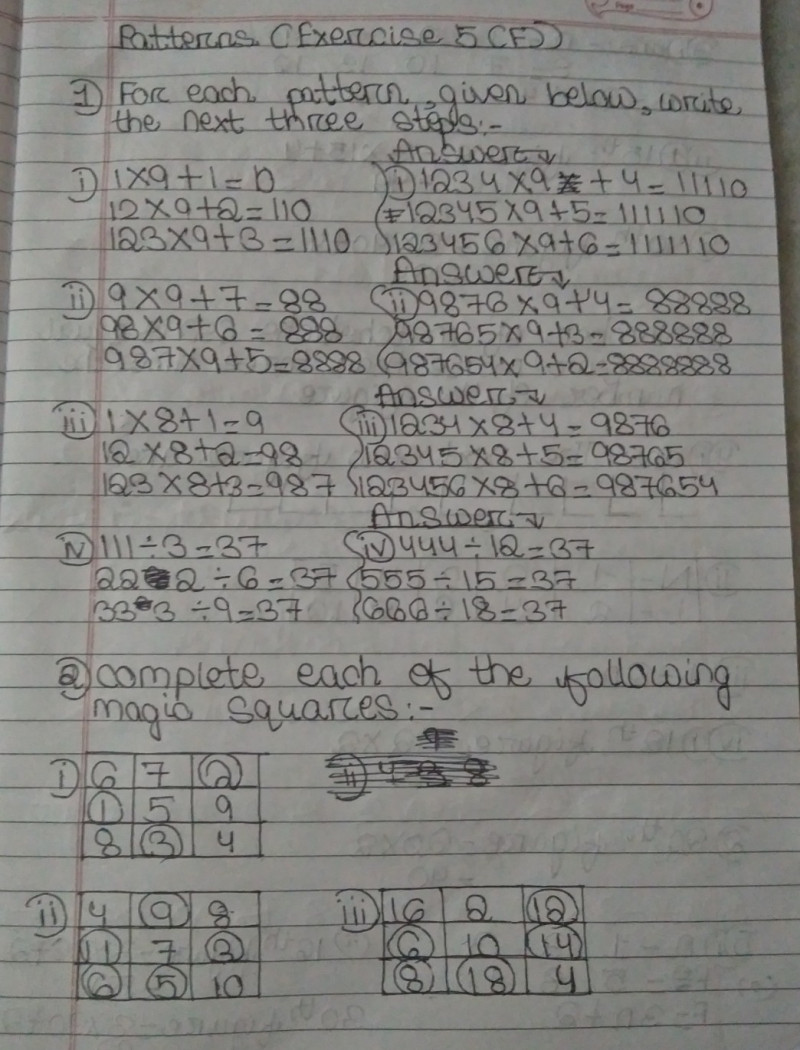 Patterns. (Exercise 5(F))
1) For each pattern, given below, write
the next three steps:-
Answer
i) 1×9+1=10
i) 1234×9+4=11110
12×9+2=110
12345×9+5=111110
123×9+3=1110
123456×9+6=1111110
Answer
ii) 9×9+7=88
ii) 9876×9+4=88888
98×9+6=888
98765×9+3=888888
987×9+5=8888
987654×9+2=8888888
Answer
iii) 1×8+1=9
iii) 1234×8+4=9876
12×8+2=98
12345×8+5=98765
123×8+3=987
123456×8+6=987654
Answer
iv) 111÷3=37
iv) 444÷12=37
222÷6=37
555÷15=37
333÷9=37
666÷18=37
2) complete each of the following
magic squares:-
i) 6 7 2
1 5 9
8 3 4
ii) 4 9 8
11 7 2
6 5 10
iii) 16 2 12
6 10 14
8 18 4